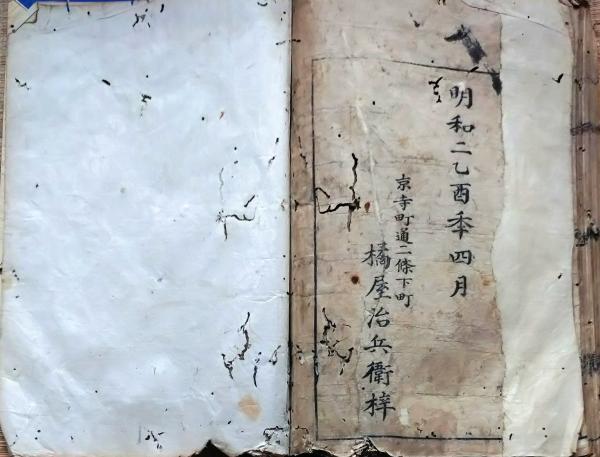 明和二乙酉年四月
京寺町通二條下町
橘屋治兵衛梓